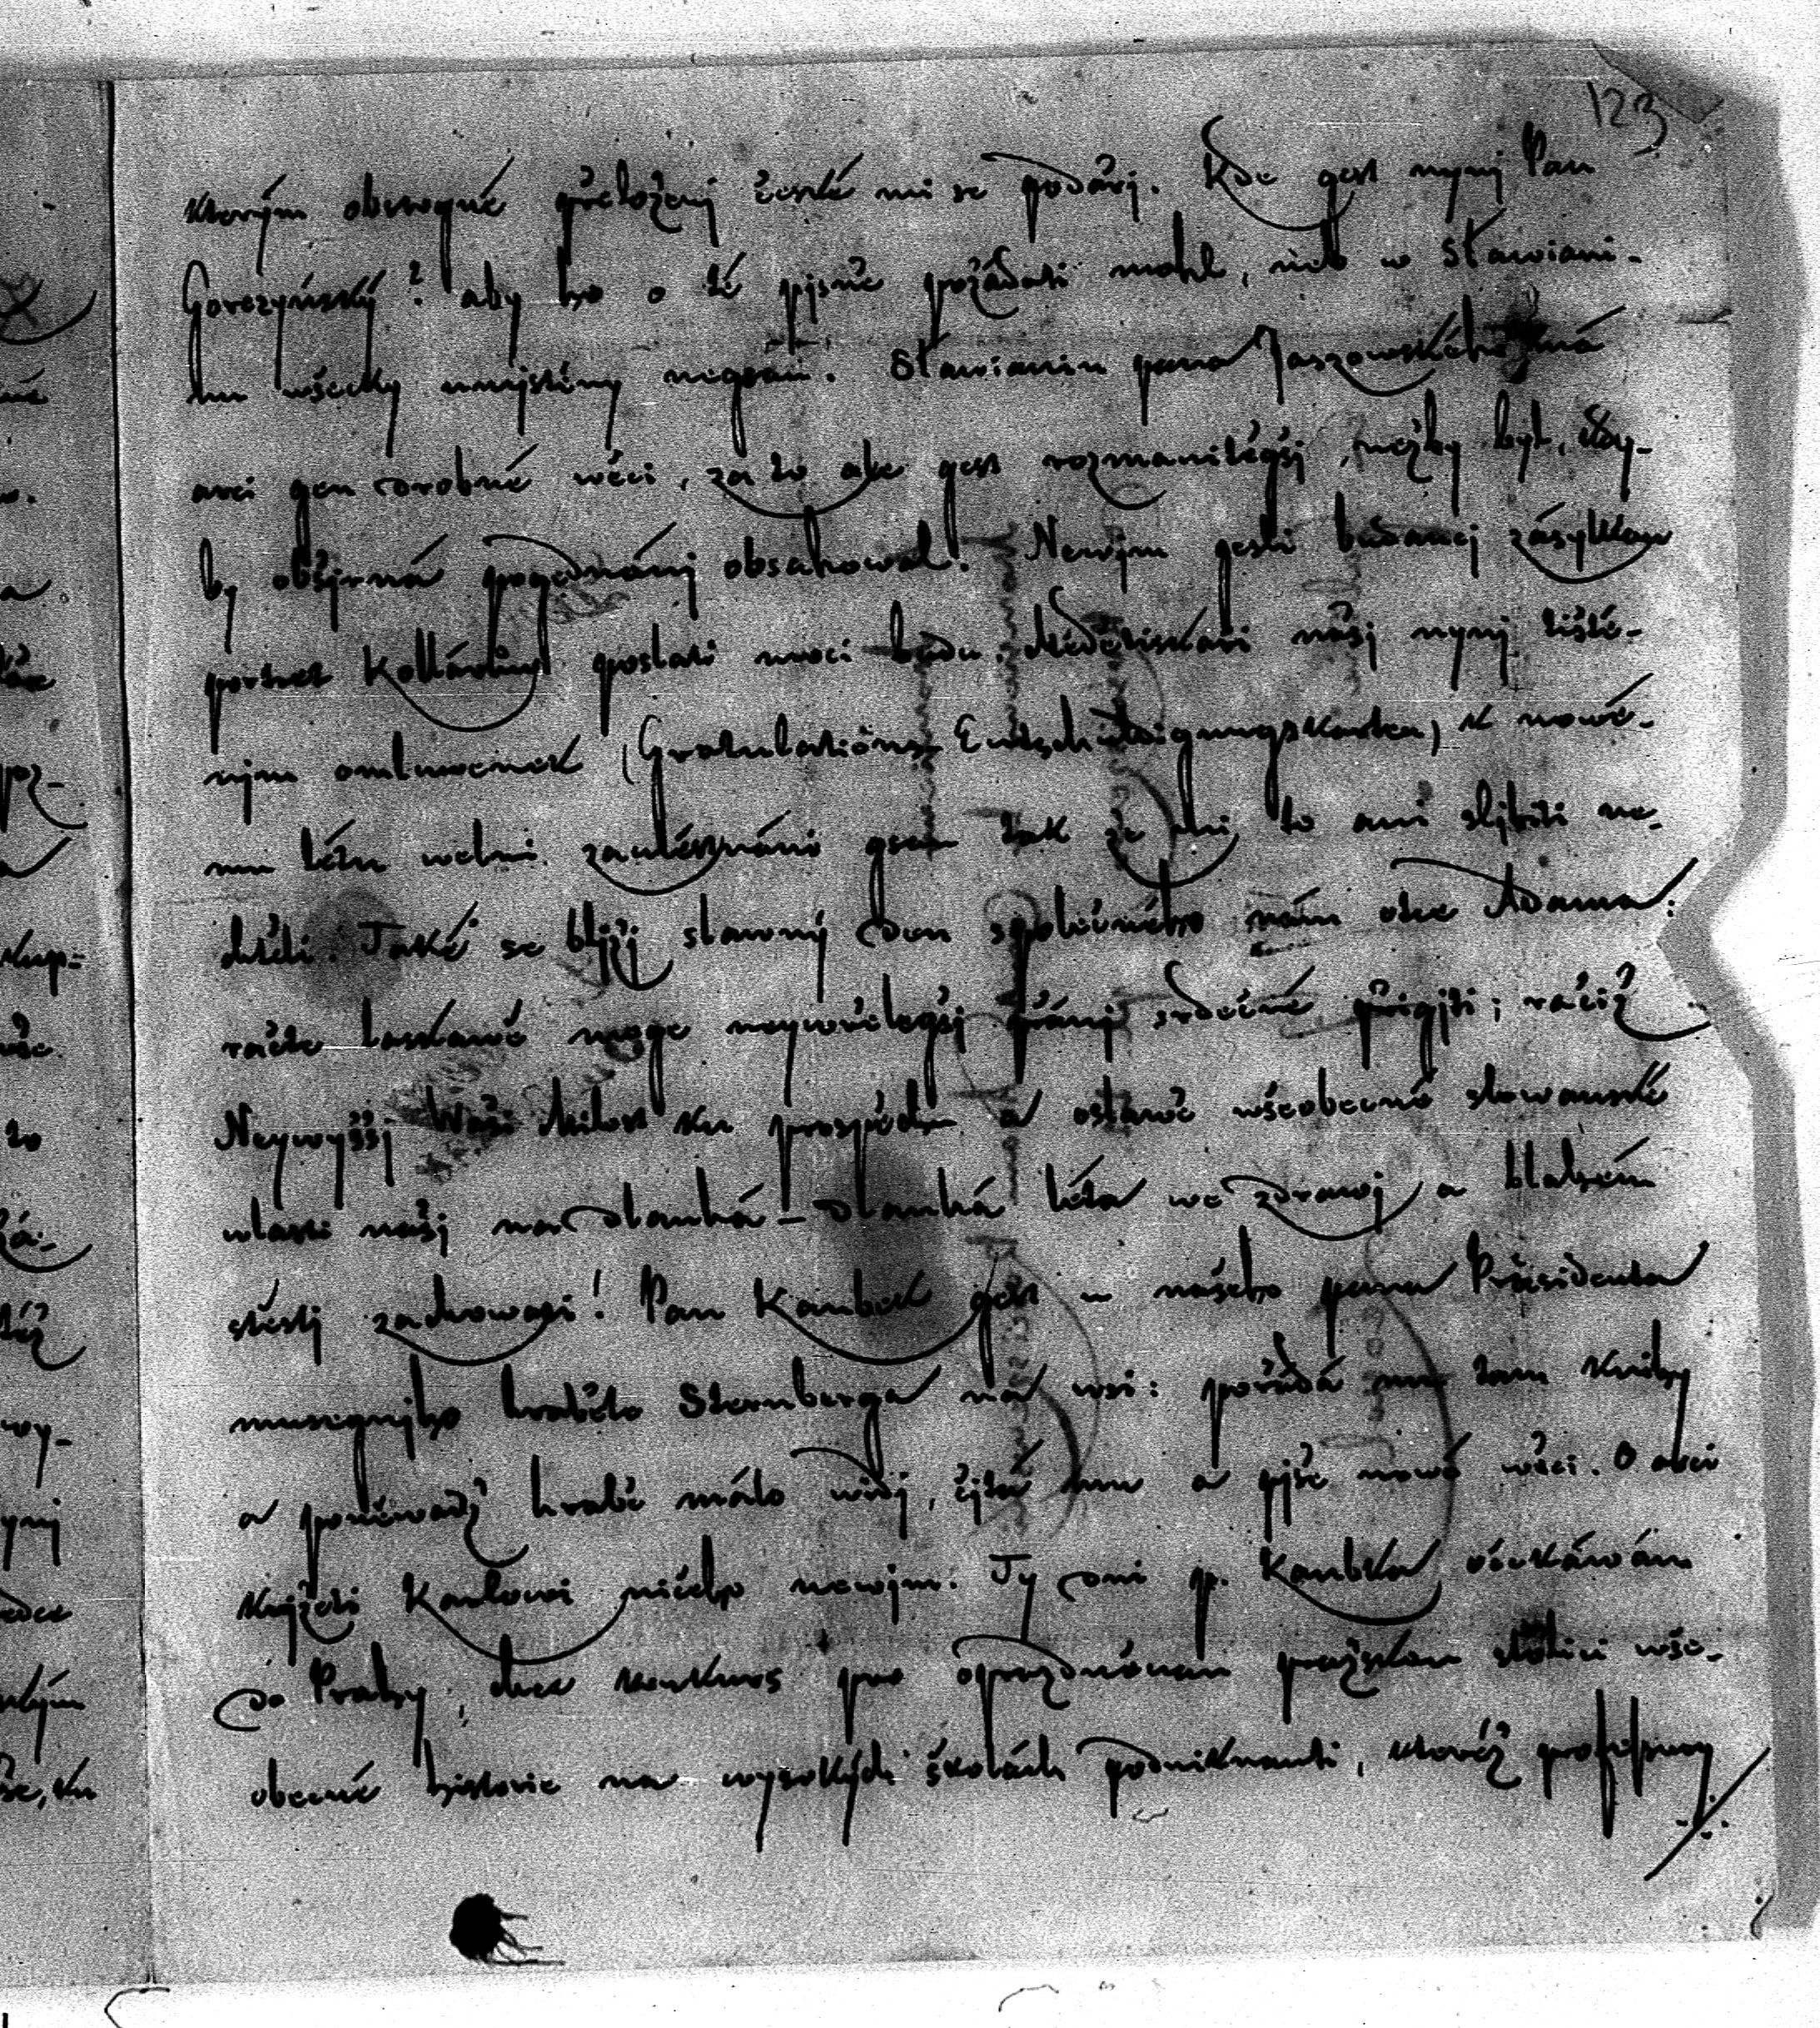 123
kterým obstogné přeloženj české mi se podařj. Kde gest nynj Pan
Gorczyńský? aby ho o té pjsně požádati mohl, neb w Sławiani-
nu wšecky umjstěny negsau. Sławianin pana Jaszowského má
arci gen drobné wěci, za to ale gest rozmanitěgšj, nežby byl, kdy-
by obšjrná pogednánj obsahowal. Newjm gestli budaucj zásylkau
portret Kollárůw poslati moci budu. Mědětiskaři našj nynj tiště-
njm omluwenek (Gratulations-Entschuldigungskarten) k nowé-
mu létu welmi zaměstnáni gsau tak že mi to ani sljbiti ne-
chtěli. Také se bljžj slawný den společného nám otce Adama:
račte laskawě moge neywřelegšj přánj srdečné přigjti; račiž
Neywyššj Waši Milost ku prospěchu a osławě wšeobecné slowanské
wlasti našj na dlauhá-dlauhá léta we zdrawj a blahém
štěstj zachowati! Pan Kaubek gest u našeho pana Präsidenta
musegnjho hraběte Sternberga na wsi: pořádá mu tam knihy
a poněwadž hrabě málo widj, čjtá mu a pjše nowé wěci. O arci
knjžeti Karlowi ničeho newjm. Ty dni p. Kaubka očekáwám
do Prahy; chce konkurs pro oprazdněnau pražskau stolici wše-
obecné historie na wysokých školách podniknauti, kteréž professury